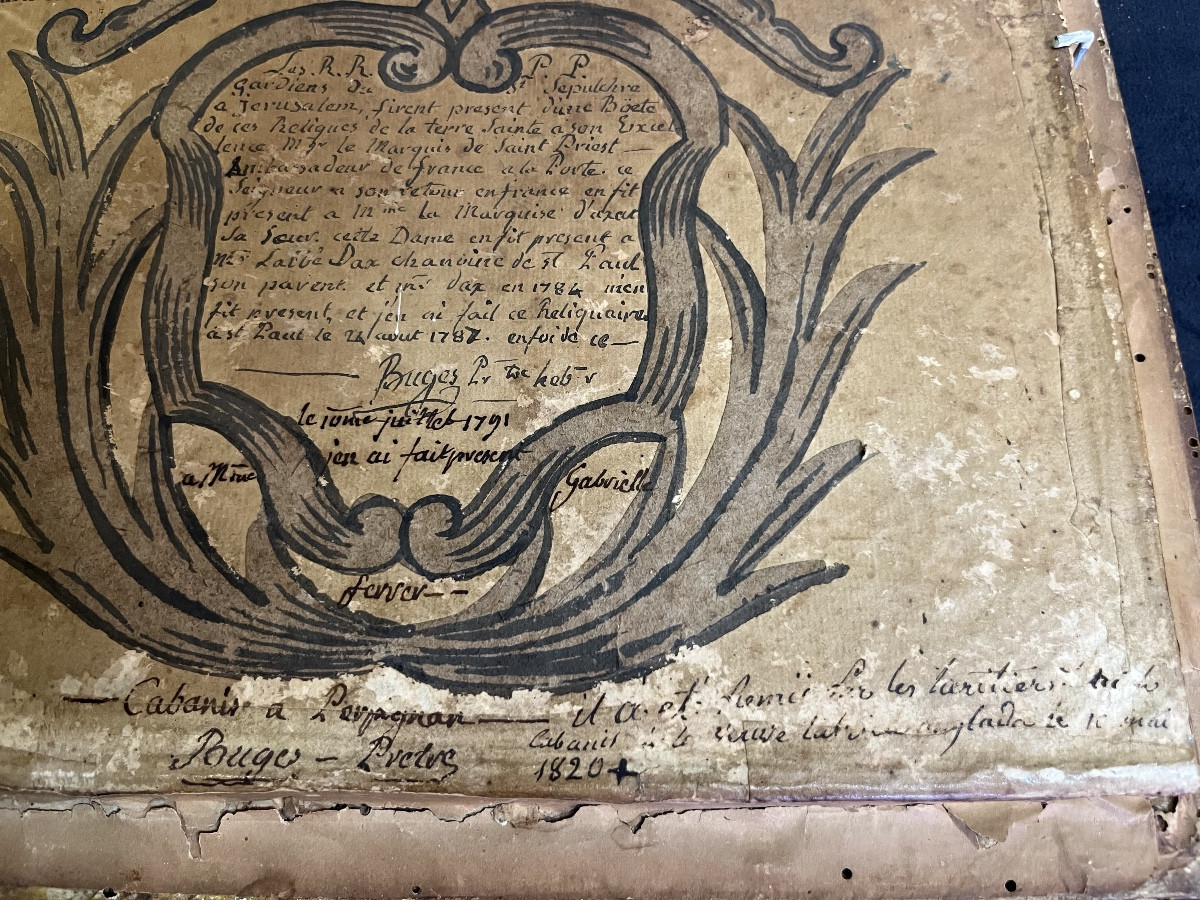 Les R. R. P P
gardiens du St Sepulchre
a Jerusalem, firent present d'une Böete
de ces Reliques de la terre Sainte a son Excel
lence Mgr le Marquis de Saint Priest —
Ambassadeur de france a la Porte. ce
Seigneur a son retour en france en fit
présent a Mme la Marquise d'axat
Sa Soeur. cette Dame en fit present a
Mr Laibé Dax chanoine de st Paul
son parent. et mr dax en 1784 men
fit present, et jen ai fait ce Reliquaire
a st Paul le 21 aout 1787. enfoi de ce —
— Buges Pr
le 10me juillet 1791
jen ai fait present
a Mme Gabrielle
ferrer - -
— Cabanis a Perpignan —
Buges - Pretre
il a eté Remis par les heritiers
Cabanis a la veuve anglada le 10 mai
1820 +